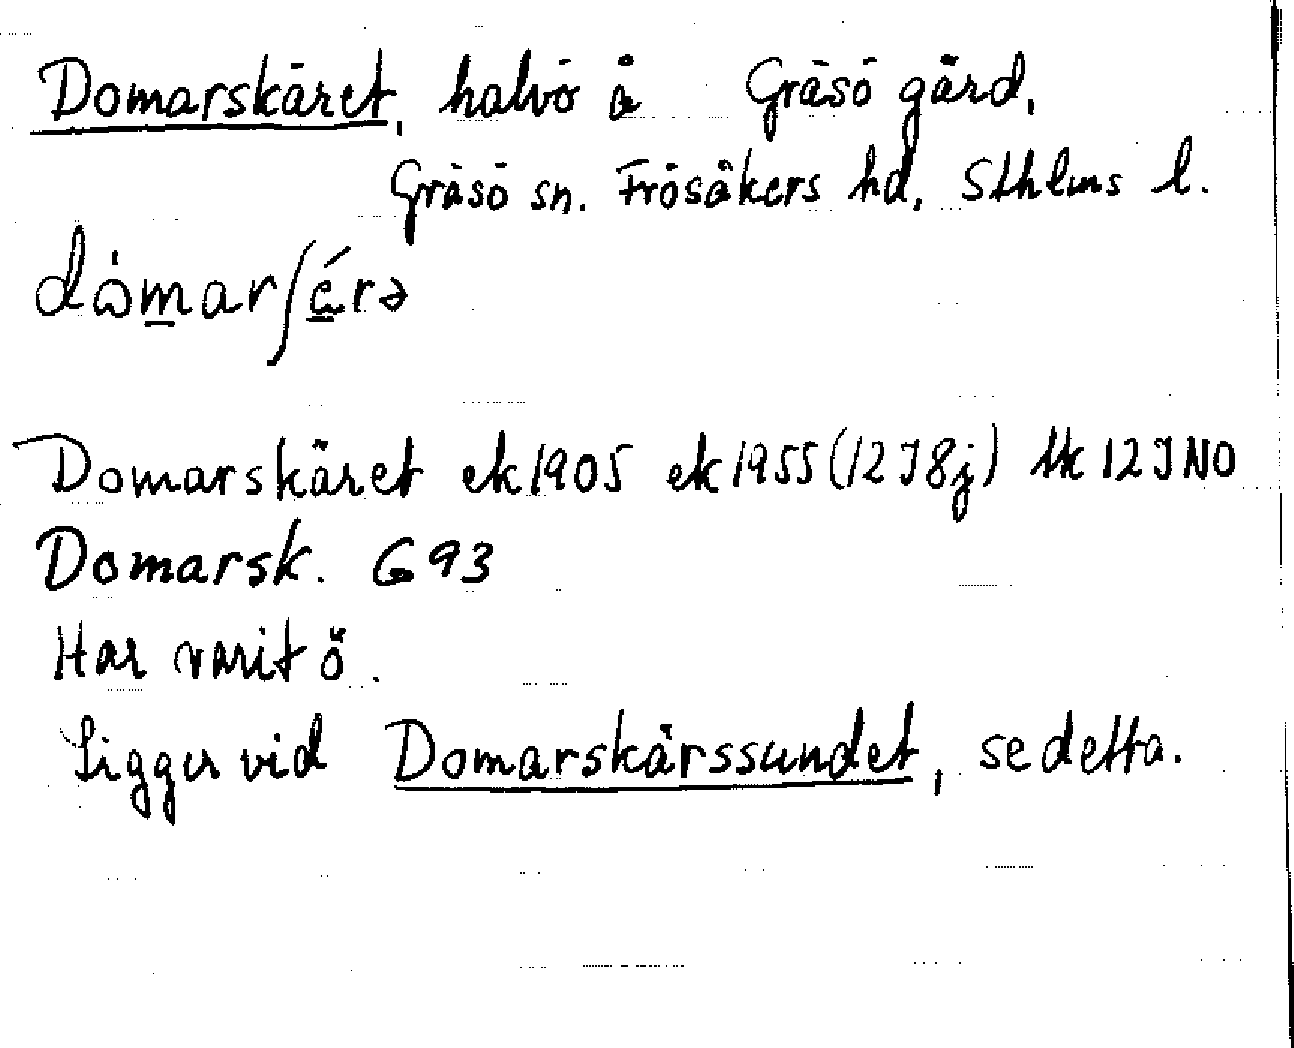 Domarskäret, halvö å Gräsö gård,
Gräsö sn. Frösåkers hd, Sthlms l.
dòmarʃǽrə
Domarskäret ek 1905 ek 1955 (12 I 8j) tk 12 I NO
Domarsk. G 93
Har varit ö.
Ligger vid Domarskärssundet, se detta.